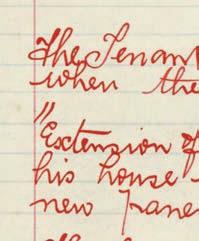 The Tenant
when the
"
Extension of
his house
new